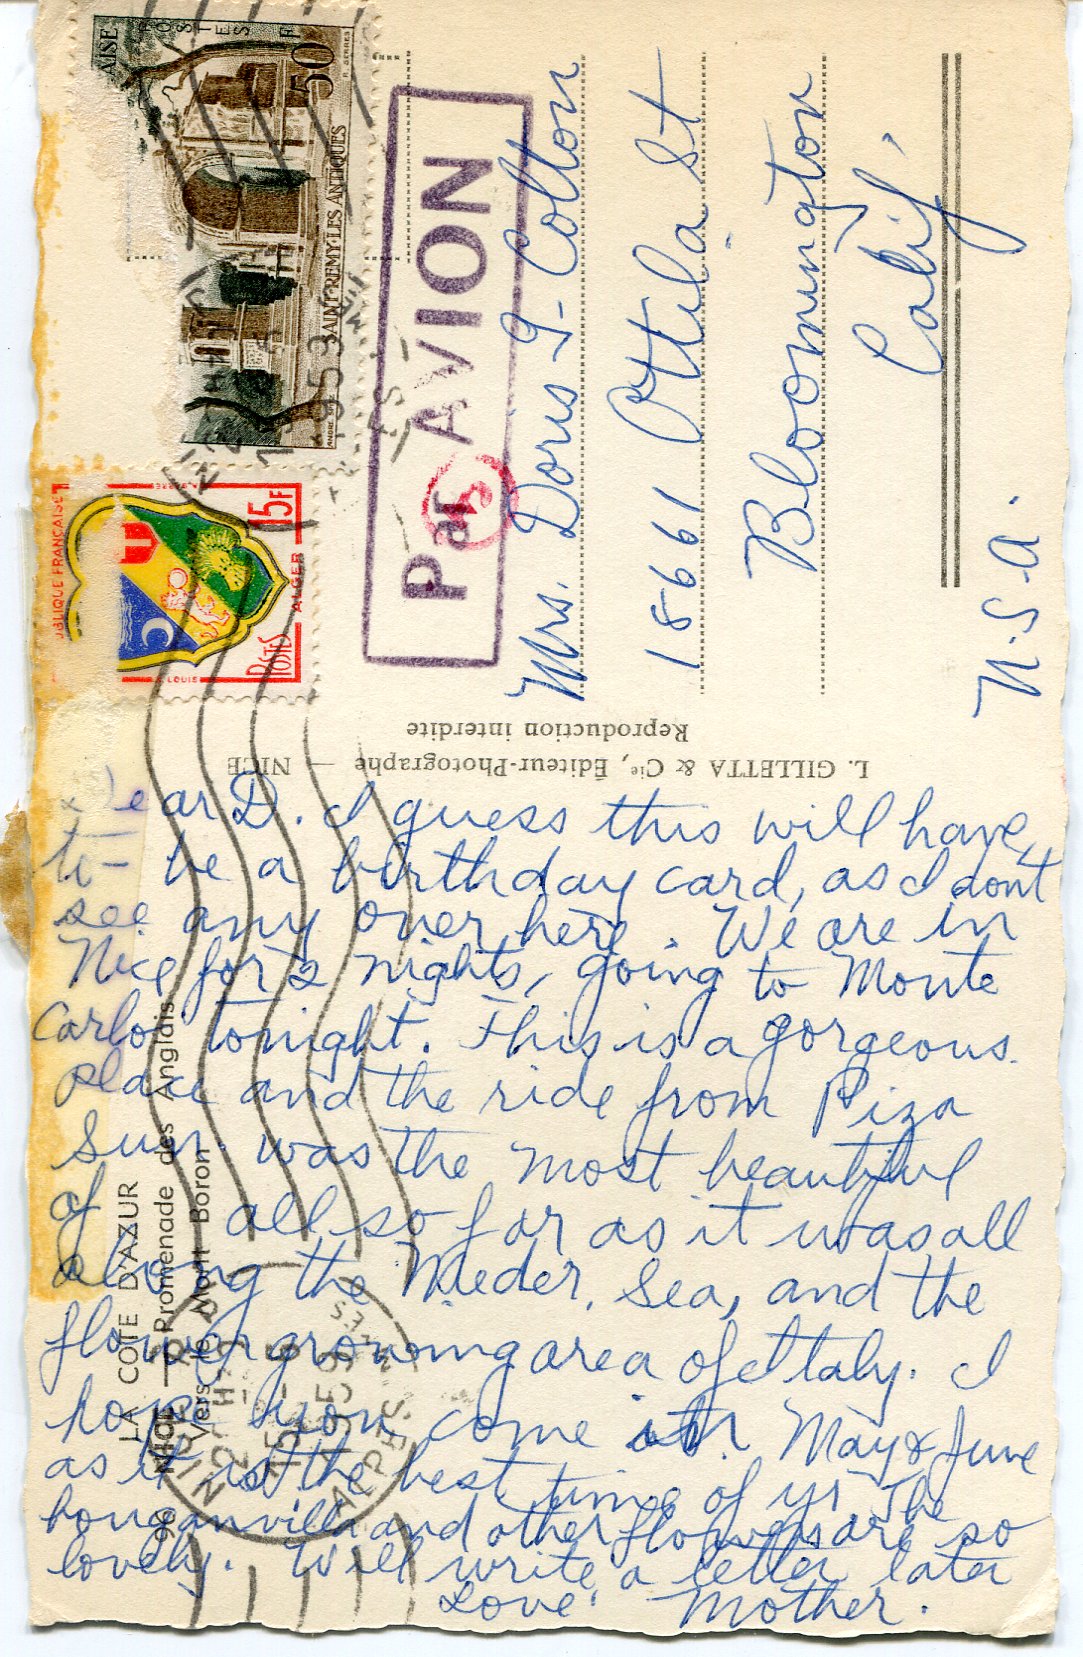 Dear D. I guess this will have
to be a birthday card, as I don't
see any over here. We are in
Nice for 2 nights, going to Monte
Carlo tonight. This is a gorgeous
place and the ride from Piza
Sun. was the most beautiful
of all so far as it was all
along the Meder. Sea, and the
flower growing area of Italy. I
hope you come in May & June
as it is the best time of yr The
bouganvilla and other flowers are so
lovely. Will write a letter later
Love. Mother.
Mrs. Doris I- Colton
18661 Otila St
Bloomington
Calif,
U.S.A.
Par AVION
50F
R. SERRES
SAINT-REMY-LES ANTIQUES
UBLIQUE FRANÇAISE
15F
ALGER
POSTES
LOUIS
L. GILLETTA & Cie, Éditeur-Photographe — NICE
Reproduction interdite
LA COTE D'AZUR
96 — NICE — Promenade des Anglais
Vers le Mont Boron
1959